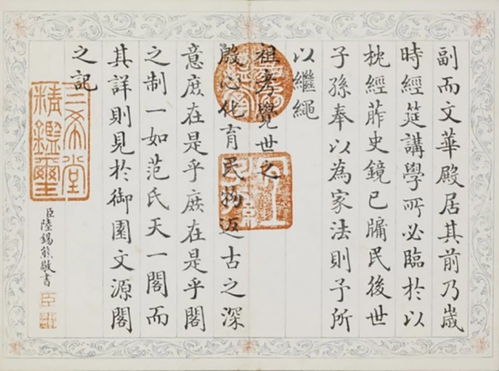 副而文華殿居其前乃歲
時經筵講學所必臨於以
枕經葄史鏡已牖民後世
子孫奉以為家法則予所
以繼繩
祖考覺世之
殷心化育民物返古之深
意庶在是乎庶在是乎閣
之制一如范氏天一閣而
其詳則見於御園文源閣
之記
三希堂
精鑑璽
臣陸錫熊敬書